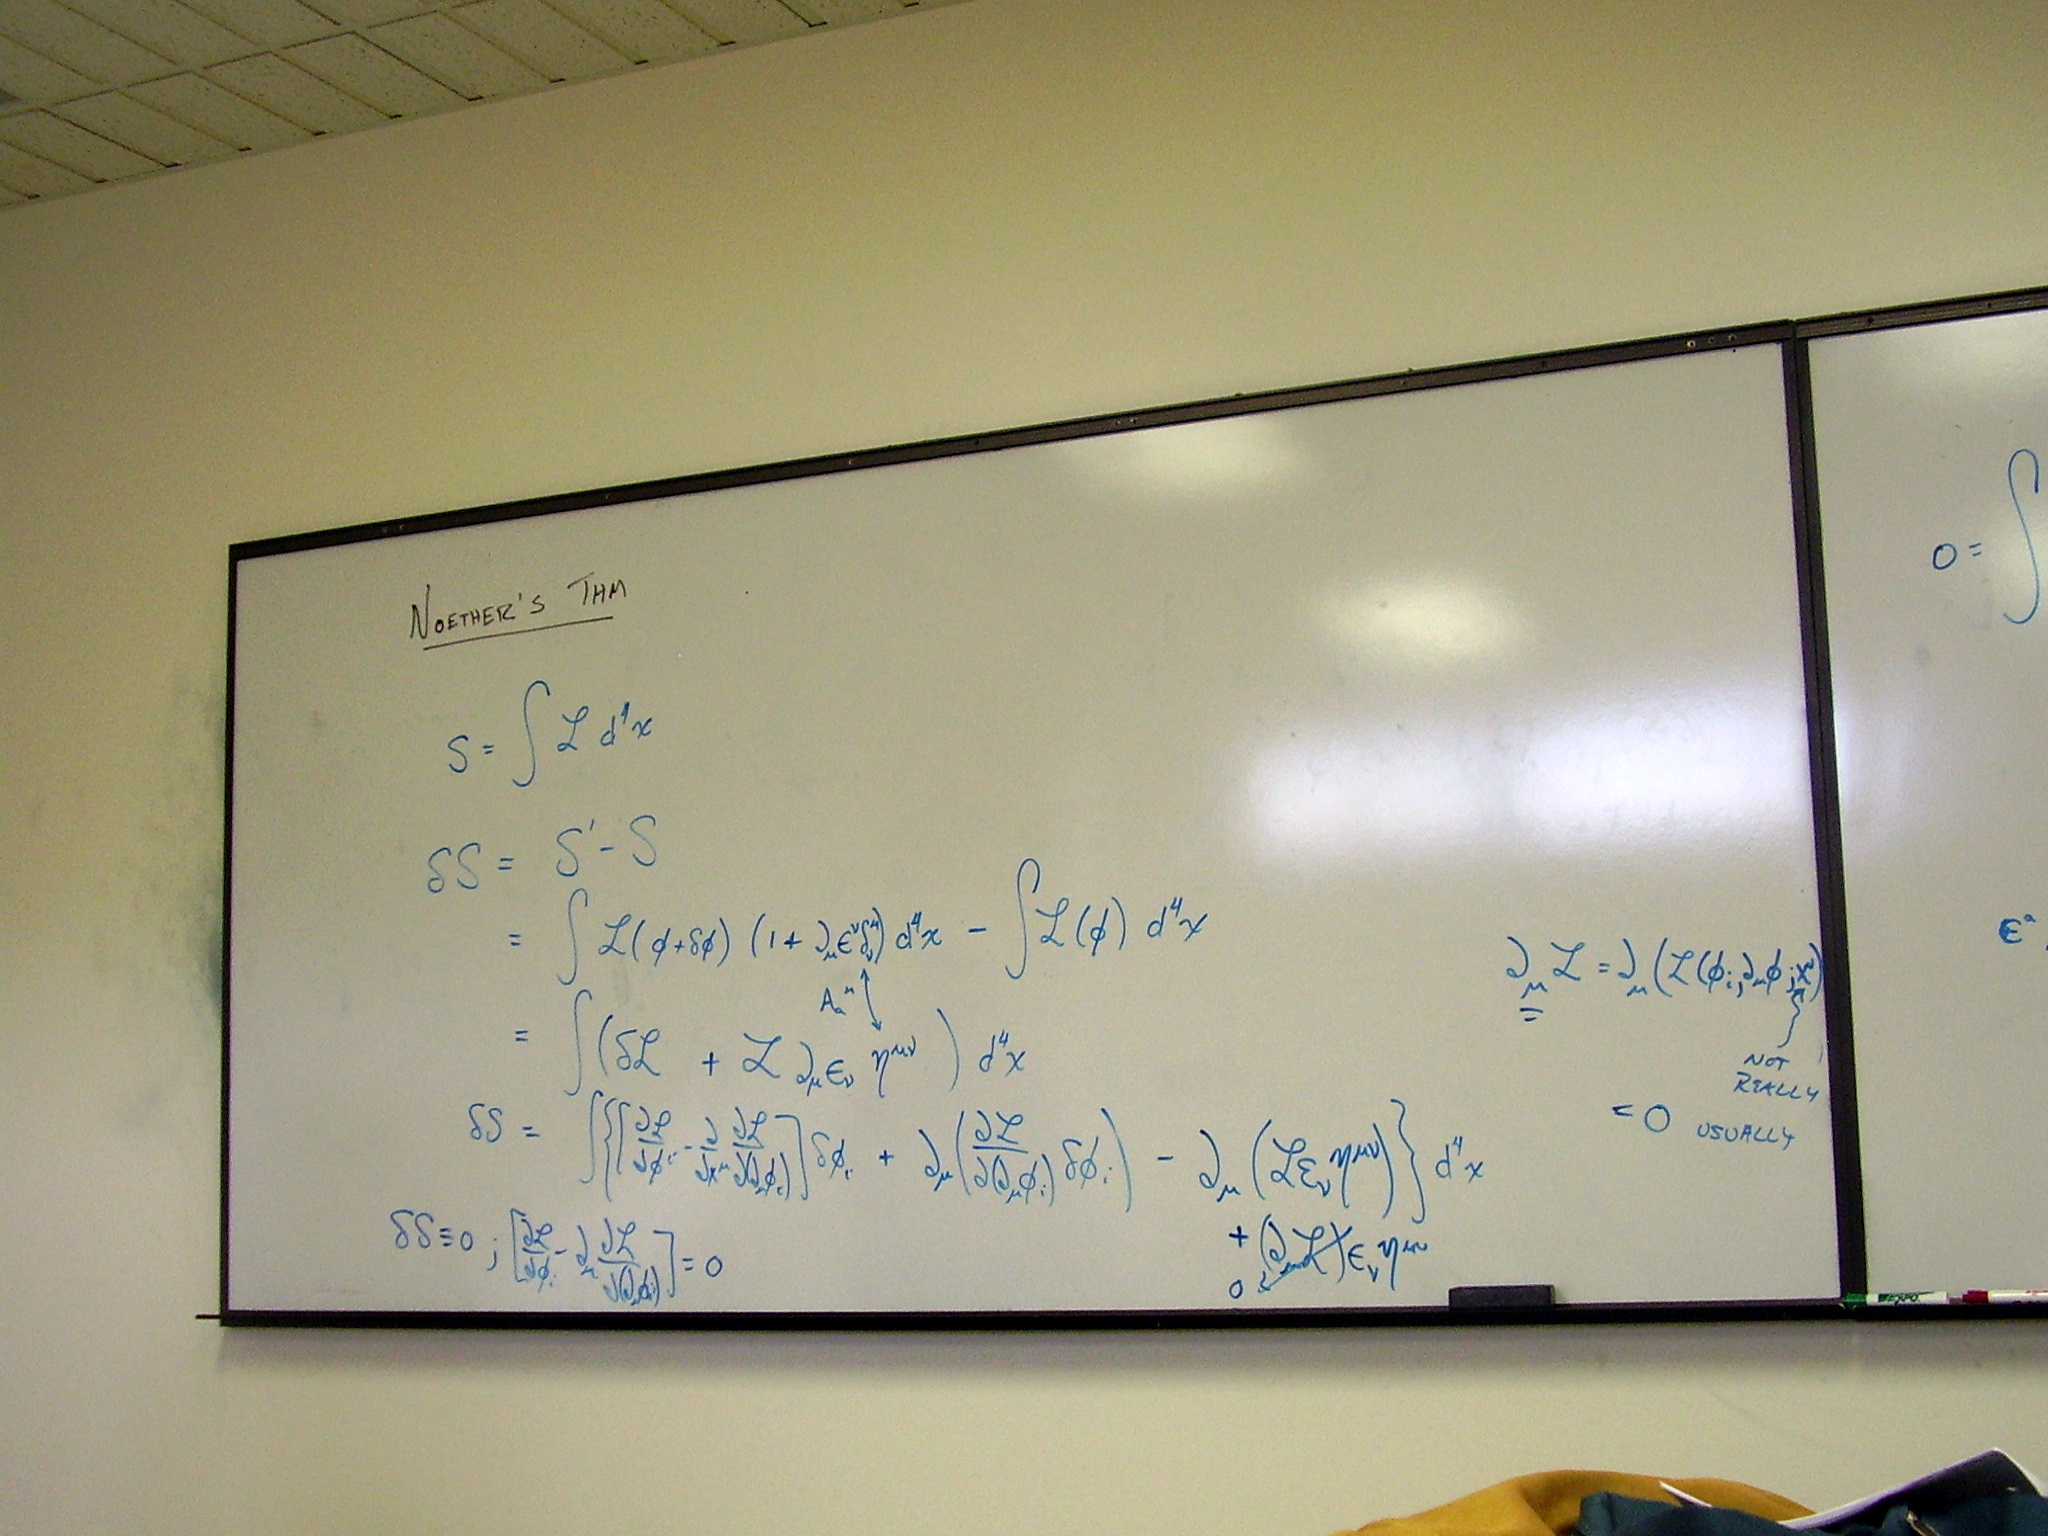 NOETHER'S THM
S = ∫ ℒ d⁴x
δS = S' - S
= ∫ ℒ(ϕ+δϕ) (1 + ∂_μ ε^ν δ_ν^μ) d⁴x - ∫ ℒ(ϕ) d⁴x
A_a^μ ↕
= ∫ (δℒ + ℒ ∂_μ ε_ν η^{μν}) d⁴x
δS = ∫{[∂ℒ/∂ϕ_i - ∂/∂x^μ ∂ℒ/∂(∂_μϕ_i)] δϕ_i + ∂_μ(∂ℒ/∂(∂_μϕ_i) δϕ_i) - ∂_μ(ℒ ε_ν η^{μν})} d⁴x
+ (∂_μ ℒ) ε_ν η^{μν}
0
δS ≡ 0 ; [∂ℒ/∂ϕ_i - ∂_μ ∂ℒ/∂(∂_μϕ_i)] = 0
∂_μ ℒ = ∂_μ(ℒ(ϕ_i; ∂_μϕ; x^ν)
NOT
REALLY
= 0 USUALLY
0 = ∫
ε^a
EXPO